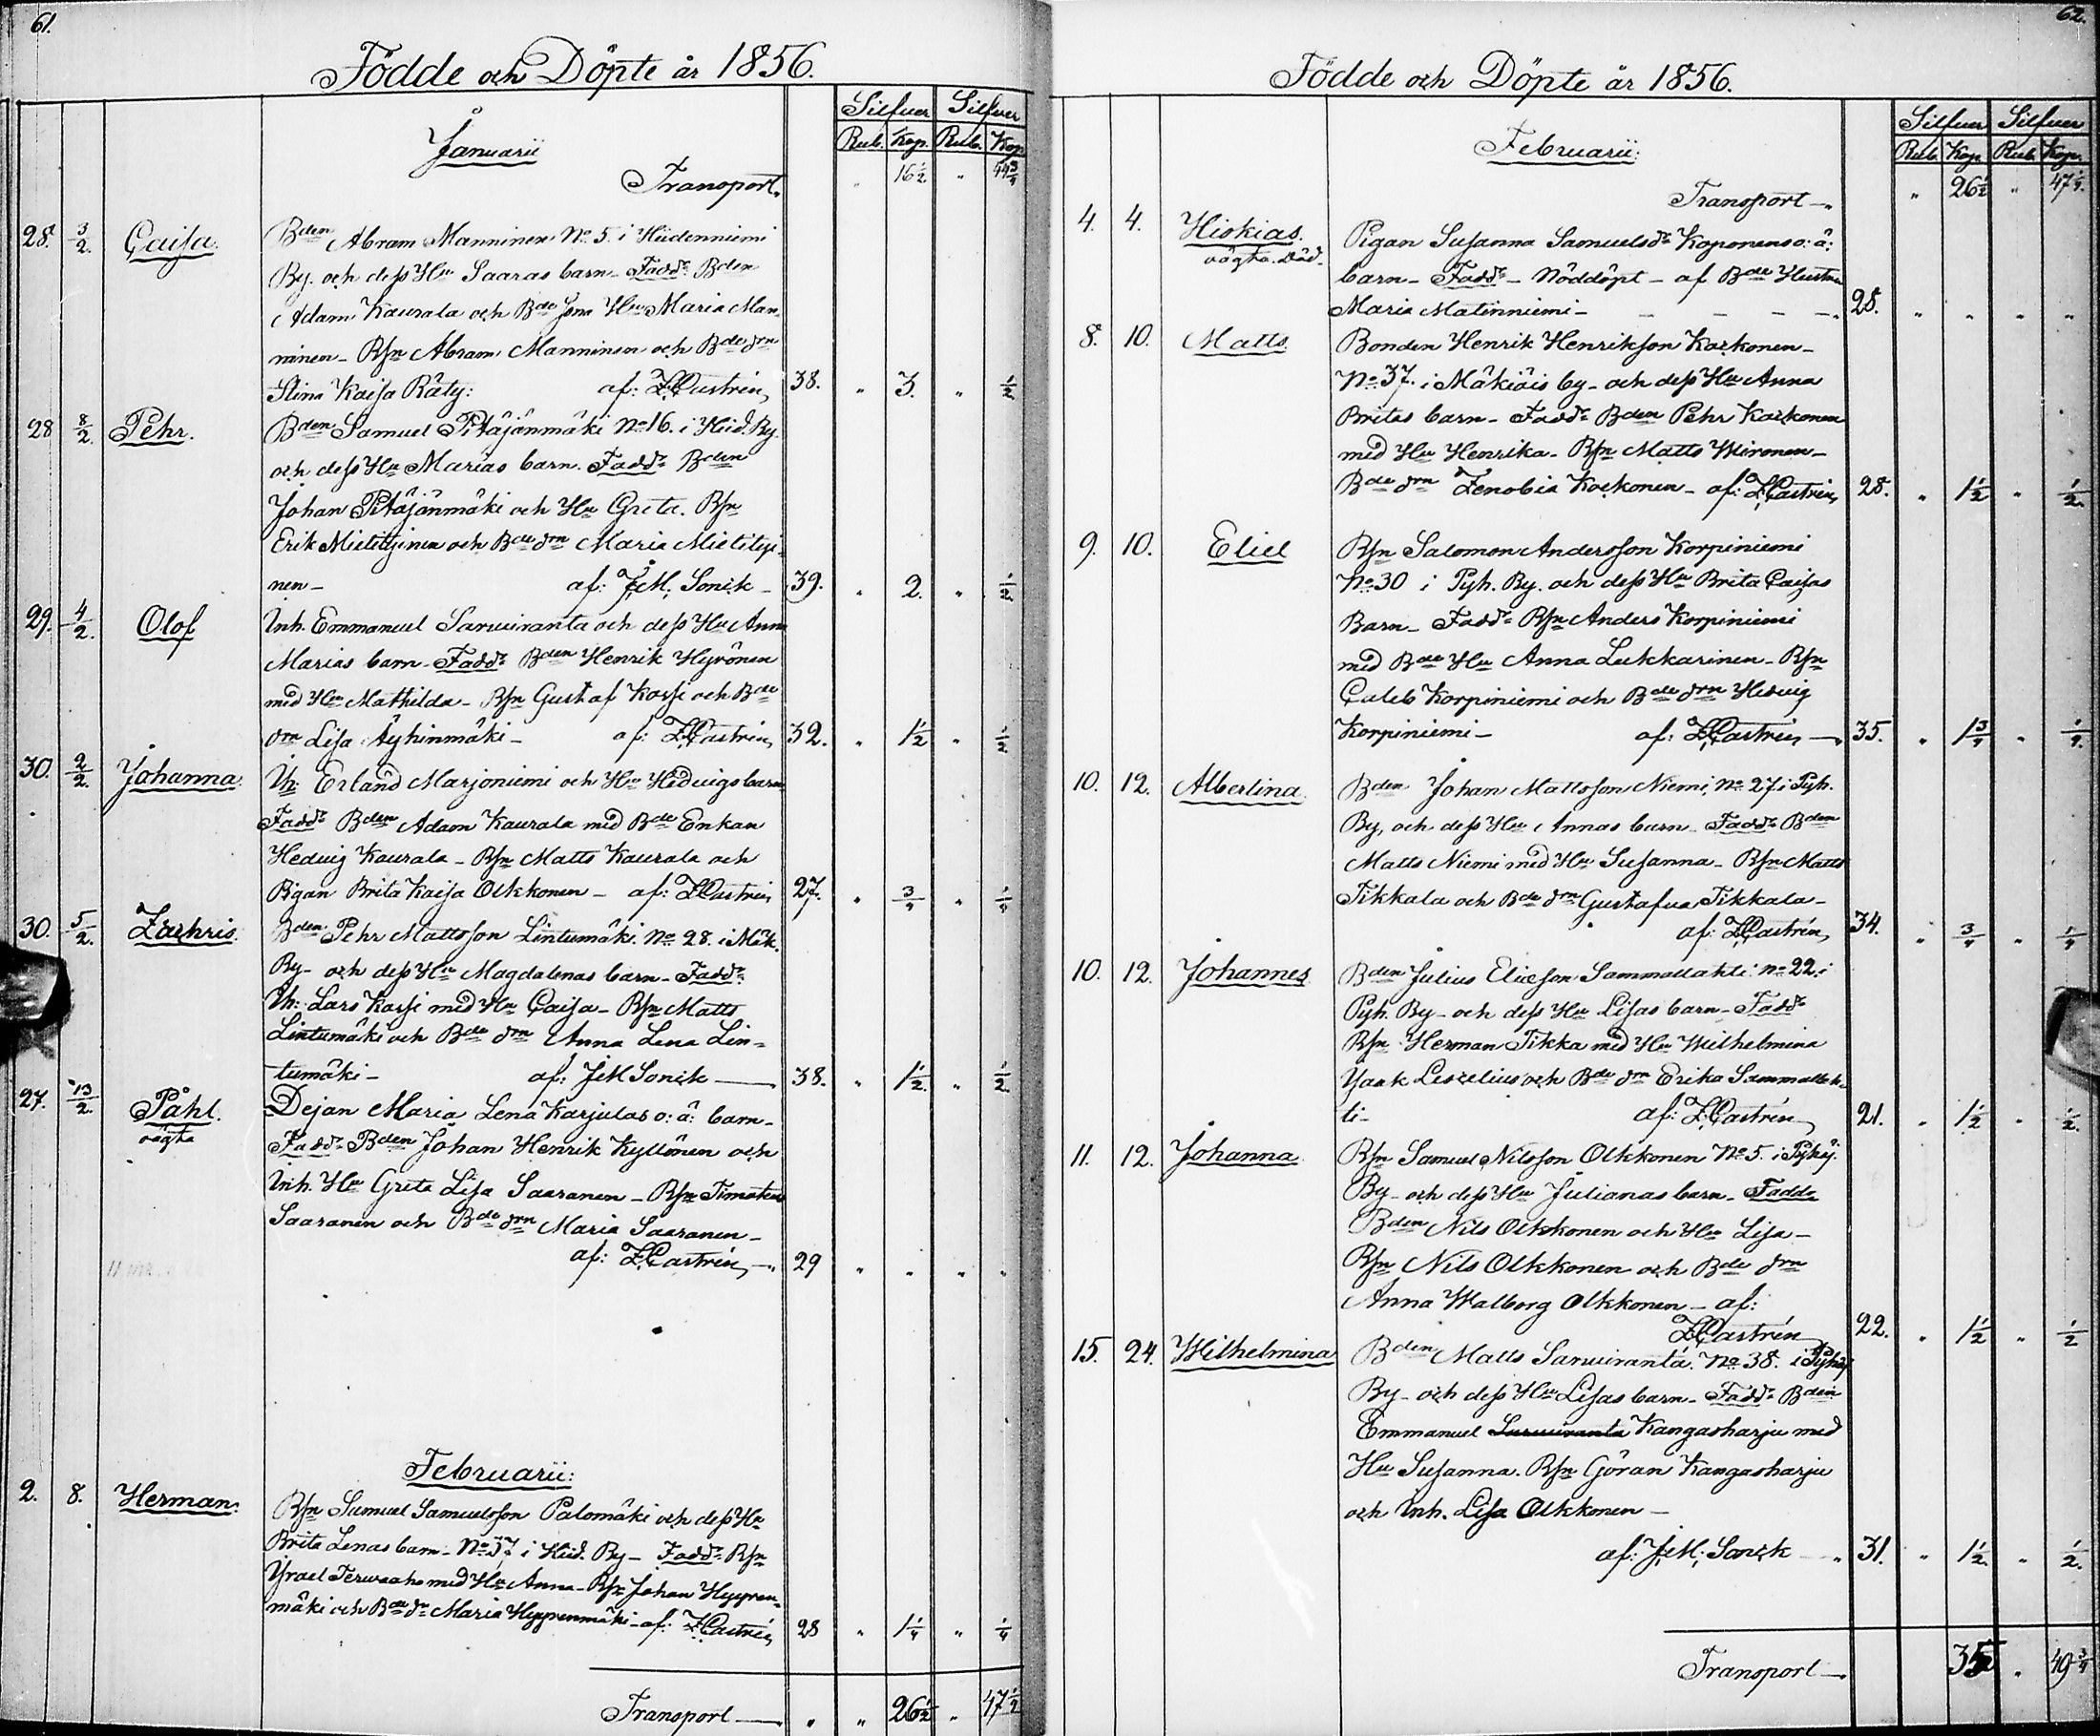 61.
Födde och Döpte år 1856.
Silfver Silfver
Rub. Kop. Rub. Kop
Januarii
Transport. " 16½ " 44¾
28. 3/2. Caisa. Bden Abram Manninen No 5. i Hiidenniemi
By. och dess Hu Saaras barn - Fadd: Bden
Adam Kaurala och Bde Jona Hu Maria Man
ninen - Rsn Abram Manninen och Bde drn
Stina Kaisa Räty: af: Z. Castrén, 38. " 3. " ½
28 8/2. Pehr. Bden Samuel Pitäjänmäki No 16. i Hiid. By
och dess Hu Marias barn. Fadd: Bden
Johan Pitäjänmäki och Hu Greta. Rsn
Erik Mietityinen och Bde drn Maria Mietityi
nen - af: J.M. Sonck - 39. " 2. " ½
29. 4/2. Olof Inh. Emmanuel Sarwiranta och dess Hu Anna
Marias barn - Fadd: Bden Henrik Hyvönen
med Hu Mathilda - Rsn Gustaf Kassi och Bde
drn Lisa Äyhinmäki - af: Z. Castrén, 32. " 1½ " ½
30. 2/2. Johanna. Ih: Erland Marjoniemi och Hu Hedvigs barn
Fadd: Bden Adam Kaurala med Bde Enkan
Hedvig Kaurala - Rsn Matts Kaurala och
Pigan Brita Kaisa Olkkonen - af: Z. Castrén 27. " ¾ " ¼
30. 5/2. Zachris. Bden Pehr Mattsson Lintumäki. No 28. i Mäk.
By - och dess Hu Magdalenas barn - Fadd:
Ih: Lars Kassi med Hu Caisa - Rsn Matts
Lintumäki och Bde drn Anna Lena Lin=
tumäki - af: J.M Sonck 38. " 1½. " ½
27. 13/2. Påhl. Dejan Maria Lena Karjulas o: ä: barn -
oägta Fadd: Bden Johan Henrik Kyllönen och
Inh. Hu Greta Lisa Saaranen - Rsn Timoteus
Saaranen och Bde drn Maria Saaranen -
af: Z. Castrén, 29 " " " "
Februarii:
2. 8. Herman. Rsn Samuel Samuelsson Palomäki och dess Hu
Brita Lenas barn - No 37 i Hiid. By - Fadd: Rsn
Ysrael Terwaaho med Hu Anna - Rsn Johan Hyyren=
mäki och Bde dr Maria Hyyrenmäki - af: Z. Castrén, 28 " 1¼ " ¼
Transport " " 26½ " 47½
62.
Födde och Döpte år 1856.
Silfver Silfver
Rub. Kop. Rub. Kop.
Februarii:
Transport " 26½ " 47½.
4. 4. Hiskias. Pigan Susanna Samuelsdr Koponens o: ä:
oägta. Död. barn - Fadd: - Nöddöpt - af Bde Hustru
Maria Matinniemi - 28. " " " "
8. 10. Matts Bonden Henrik Henriksson Karkonen -
No 37. i Mäkiäis by - och dess Hu Anna
Britas barn - Fadd: Bden Pehr Karkonen
med Hu Henrika - Rsn Matts Mironen -
Bde drn Zenobia Korkonen - af: Z. Castrén, 28. " 1½ " ½.
9. 10. Eliel Rsn Salomon Andersson Korpiniemi
No 30 i Pyh. By. och dess Hu Brita Caisas
Barn - Fadd: Rsn Anders Korpiniemi
med Bde Hu Anna Lukkarinen - Rsn
Caleb Korpiniemi och Bde drn Hedvig
Korpiniemi - af: Z. Castrén 35. " 1¾ " ¼.
10. 12. Albertina. Bden Johan Mattsson Niemi, No 27 i Pyh.
By, och dess Hu Annas barn - Fadd: Bden
Matts Niemi med Hu Susanna - Rsn Matts
Tikkala och Bde drn Gustafva Tikkala -
af: Z. Castrén, 34. " ¾ " ¼
10. 12. Johannes Bden Julius Eliæson Sammallahti No 22. i
Pyh. By - och dess Hu Lisas barn - Fadd:
Rsn Herman Tikka med Hu Wilhelmina
Ysaak Leskelius och Bde drn Erika Sammallah-
ti - af: Z. Castrén, 21. " 1½ " ½.
11. 12. Johanna Rsn Samuel Nilsson Olkkonen No 5. i Pyhäj.
By - och dess Hu Julianas barn - Fadd:
Bden Nils Olkkonen och Hu Lisa -
Rsn Nils Olkkonen och Bde drn
Anna Walborg Olkkonen - af:
Z. Castrén 22. " 1½ " ½
15. 24. Wilhelmina Bden Matts Sarwiranta. No 38. i Pyhäj
By - och dess Hu Lisas barn - Fadd: Bden
Emmanuel Sarwiranta Kangasharju med
Hu Susanna. Rsn Göran Kangasharju
och Inh. Lisa Olkkonen -
af: J.M. Sonck 31. " 1½. " ½.
Transport 35 " 49¾